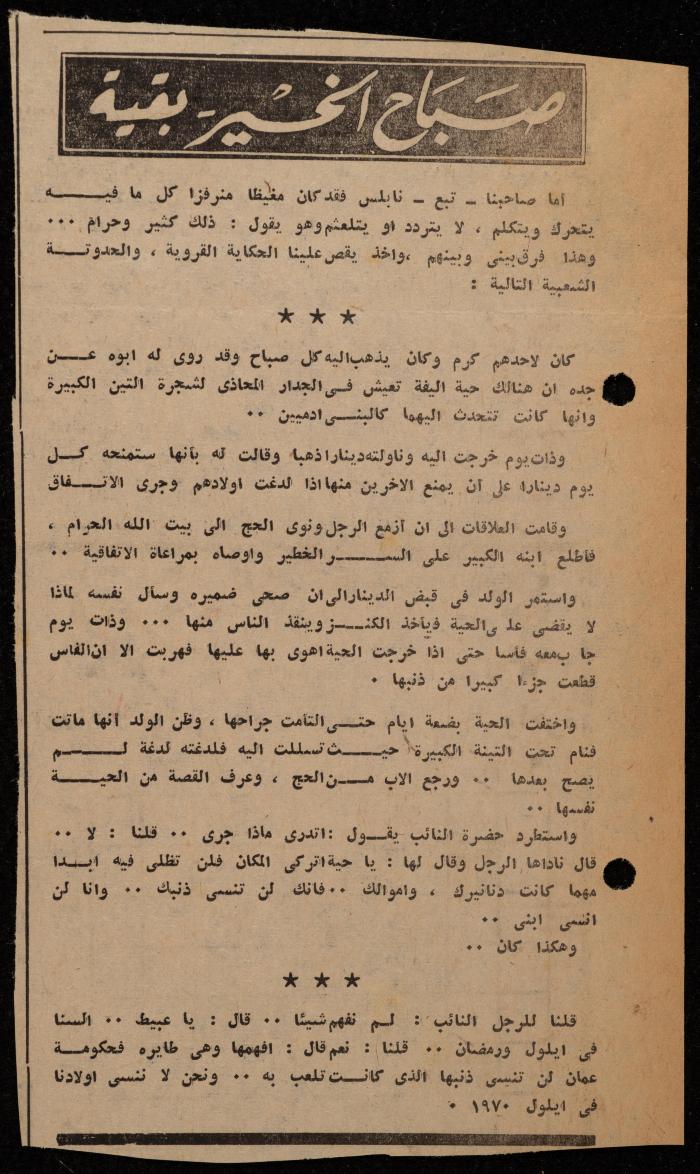 صباح الخير - بقية
اما صاحبنا ـ تبع ـ نابلس فقد كان مغيظا منرفزا كل ما فيه
يتحرك ويتكلم ، لا يتردد او يتلعثم وهو يقول : ذلك كثير وحرام ٠٠٠
وهذا فرق بيني وبينهم ،واخذ يقص علينا الحكاية القروية ، والحدوتة
الشعبية التالية :
★ ★ ★
كان لاحدهم كرم وكان يذهب اليه كل صباح وقد روى له ابوه عن
جده ان هنالك حية اليفة تعيش في الجدار المحاذى لشجرة التين الكبيرة
وانها كانت تتحدث اليهما كالبنى ادميين ٠٠
وذات يوم خرجت اليه وناولته دينارا ذهبا وقالت له بأنها ستمنحه كل
يوم دينارا على أن يمنع الاخرين منها اذا لدغت اولادهم وجرى الاتفاق
وقامت العلاقات الى ان أزمع الرجل ونوى الحج الى بيت الله الحرام ،
فأطلع ابنه الكبير على السر الخطير واوصاه بمراعاة الاتفاقية ٠٠
واستمر الولد في قبض الدينار الى ان صحى ضميره وسأل نفسه لماذا
لا يقضى على الحية فيأخذ الكنز وينقذ الناس منها ٠٠٠ وذات يوم
جا بمعه فأسا حتى اذا خرجت الحية اهوى بها عليها فهربت الا ان الفاس
قطعت جزءا كبيرا من ذنبها ٠
واختفت الحية بضعة ايام حتى التأمت جراحها ، وظن الولد أنها ماتت
فنام تحت التينة الكبيرة حيث تسللت اليه فلدغته لدغة لم
يصح بعدها ٠٠ ورجع الاب من الحج ، وعرف القصة من الحية
نفسها ٠٠
واستطرد حضرة النائب يقول : اتدرى ماذا جرى ٠٠ قلنا : لا ٠٠
قال ناداها الرجل وقال لها : يا حية اتركى المكان فلن تظلى فيه ابدا
مهما كانت دنانيرك ، واموالك ٠٠ فانك لن تنسى ذنبك ٠٠ وانا لن
انسى ابنى ٠٠
وهكذا كان ٠٠
★ ★ ★
قلنا للرجل النائب : لم نفهم شيئا ٠٠ قال : يا عبيط ٠٠ السنا
في ايلول ورمضان ٠٠ قلنا : نعم قال : افهمها وهى طايره فحكومة
عمان لن تنسى ذنبها الذى كانت تلعب به ٠٠ ونحن لا ننسى اولادنا
في ايلول ١٩٧٠ ٠